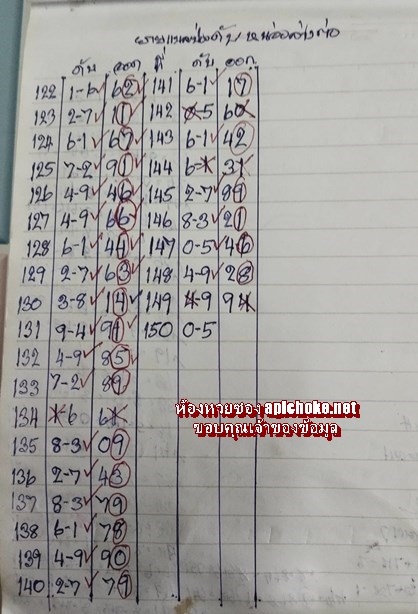 ดับ ออก ที่ ดับ ออก
122 1-6 62 141 6-1 17
123 2-7 11 142 0-5 60
124 6-1 67 143 6-1 42
125 7-2 91 144 6-1 31
126 4-9 46 145 2-7 
127 4-9 66 146 8-3 21
128 6-1 44 147 0-5 46
129 2-7 63 148 4-9 28
130 3-8 14 149 4-9 94
131 9-4 91 150 0-5
132 4-9 85
133 7-2 39
134 6 61
135 8-3 09
136 2-7 43
137 8-3 79
138 6-1 78
139 4-9 90
140 2-7 79
ห้องหวยซอง apichoke.net
ขอบคุณเจ้าของข้อมูล